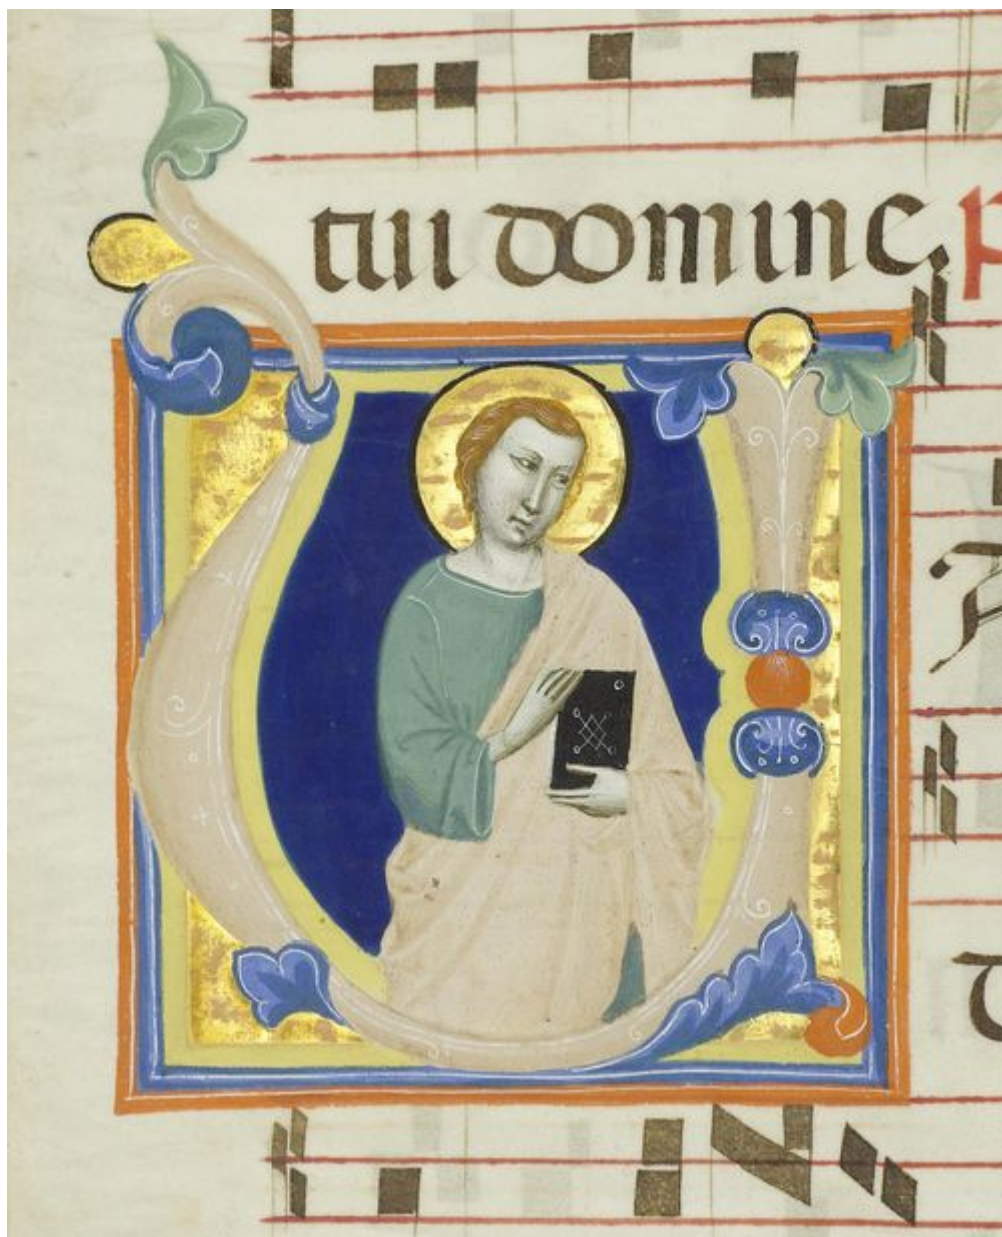 tui domine.
V